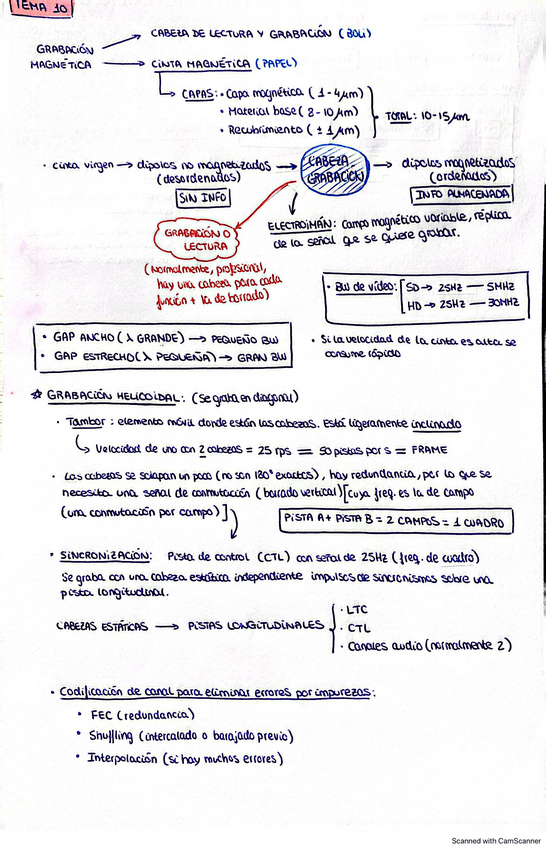 TEMA 10
CABEZA DE LECTURA Y GRABACIÓN (BOLI)
GRABACIÓN
MAGNÉTICA
CINTA MAGNÉTICA (PAPEL)
CAPAS: · Capa magnética (1-4μm)
· Material base (8-10μm)
· Recubrimiento (± 1μm)
TOTAL: 10-15μm
· cinta virgen → dipolos no magnetizados →
(desordenados)
SIN INFO
CABEZA
GRABACIÓN
→ dipolos magnetizados
(ordenados)
INFO ALMACENADA
GRABACIÓN O
LECTURA
(Normalmente, profesional,
hay una cabeza para cada
función + la de borrado)
ELECTROIMÁN: Campo magnético variable, réplica
de la señal que se quiere grabar.
· BW de vídeo: SD → 25Hz — 5MHz
HD → 25Hz — 30MHz
· GAP ANCHO (λ GRANDE) → PEQUEÑO BW
· GAP ESTRECHO (λ PEQUEÑA) → GRAN BW
· Si la velocidad de la cinta es alta se
consume rápido
☆ GRABACIÓN HELICOIDAL: (Se graba en diagonal)
· Tambor: elemento móvil donde están las cabezas. Está ligeramente inclinado
Velocidad de uno con 2 cabezas = 25 rps = 50 pistas por s = FRAME
· Las cabezas se solapan un poco (no son 180° exactos), hay redundancia, por lo que se
necesita una señal de conmutación (borrado vertical) [cuya freq. es la de campo
(una conmutación por campo)]
PISTA A + PISTA B = 2 CAMPOS = 1 CUADRO
· SINCRONIZACIÓN: Pista de control (CTL) con señal de 25Hz (freq. de cuadro)
Se graba con una cabeza estática independiente impulsos de sincronismos sobre una
pista longitudinal.
CABEZAS ESTÁTICAS → PISTAS LONGITUDINALES
· LTC
· CTL
· Canales audio (normalmente 2)
· Codificación de canal para eliminar errores por impurezas:
· FEC (redundancia)
· Shuffling (intercalado o barajado previo)
· Interpolación (si hay muchos errores)
Scanned with CamScanner